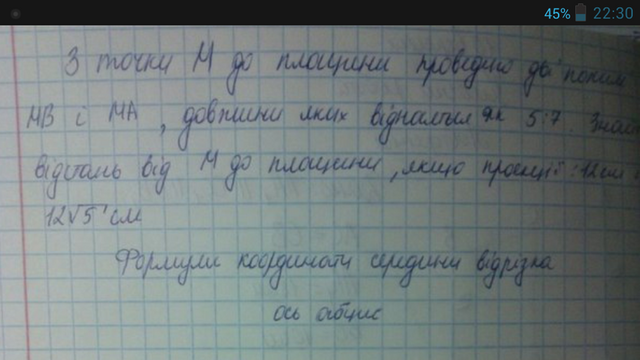 45% 22:30
З точки М до площини проведено дві похилі
МВ і МА, довжини яких відносяться як 5:7. Знай
відстань від М до площини, якщо проекції: 12см і
12√5 см
Формули координати середини відрізка
ось абцис